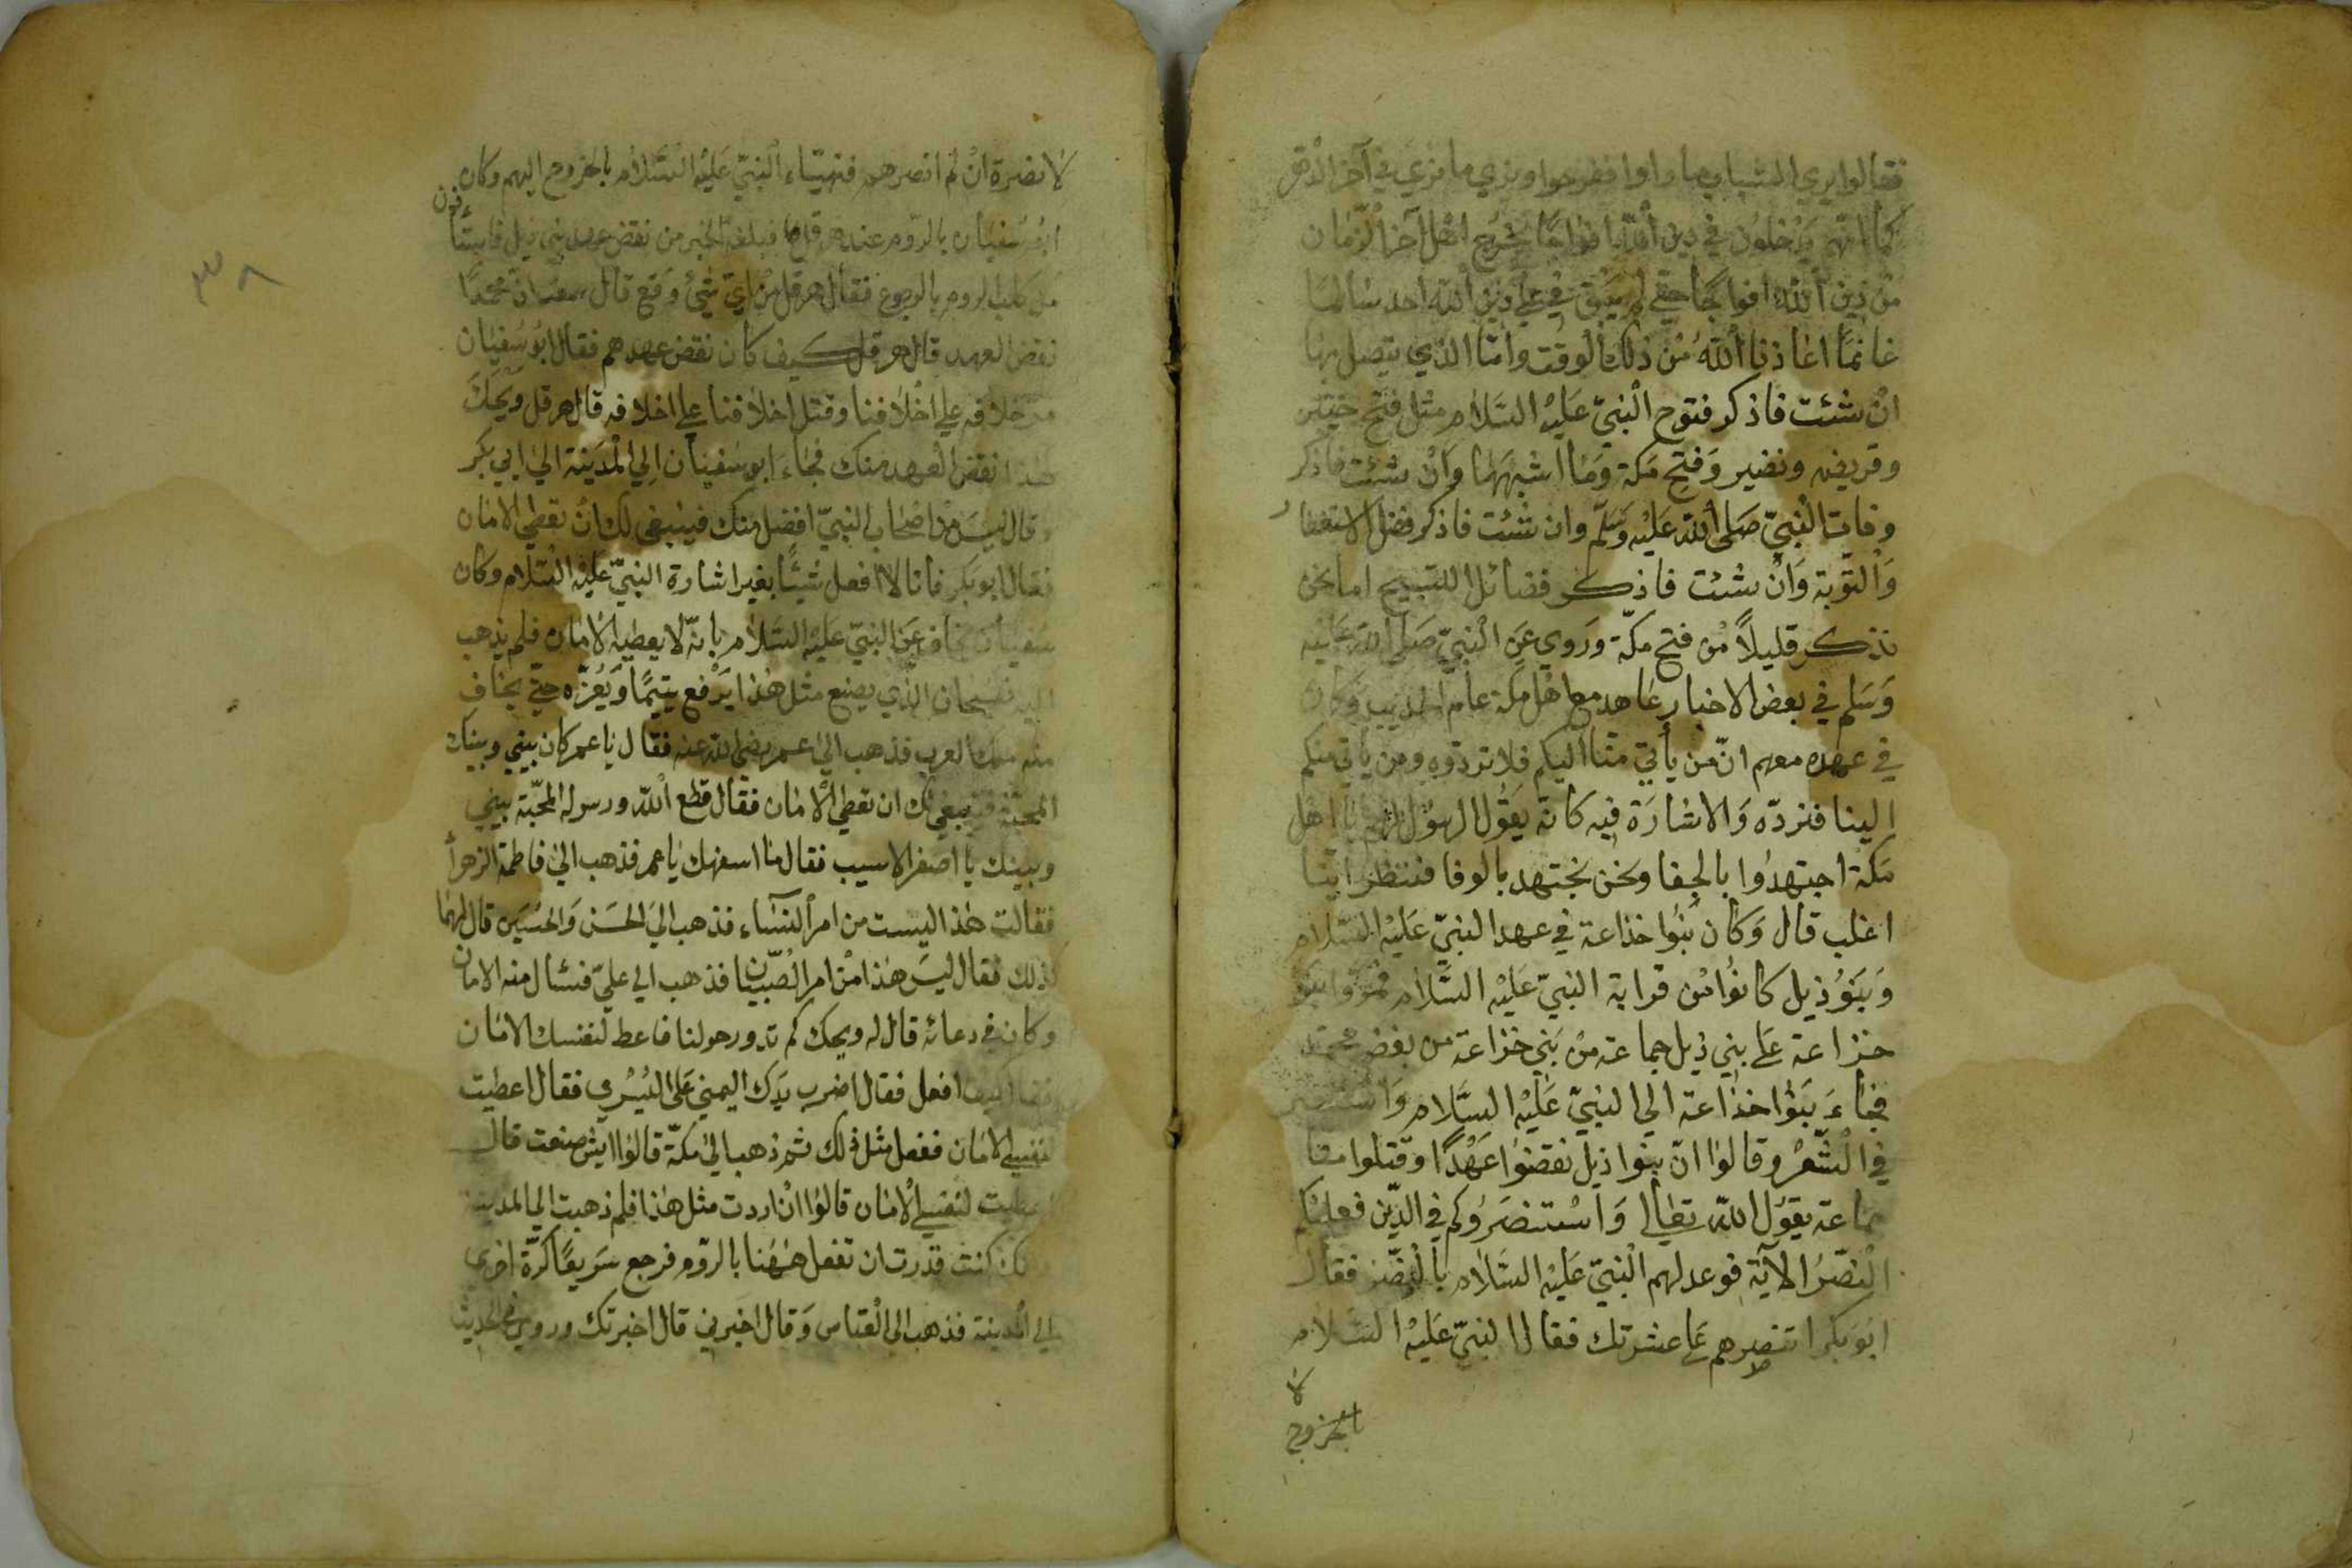 فقالوا يري الشباب ما راوا ففرحوا ونري ما نري في آخر الامر
كما انهم يدخلون في دين الله افواجا يخرج اهل آخر الزمان
من دين الله افواجا حتي لم يبق في علي دين الله احد سالما
غانما اعاذنا الله من ذلك الوقت واما الذي يتصل بها
ان شئت فاذكر فتوح النبي عليه السلام مثل فتح خيبر
وقريضه ونضير وفتح مكة وما اشبهها وان شئت فاذكر
وفات النبي صلي الله عليه وسلم وان شئت فاذكر فضل الاستغفار
والتوبة وان شئت فاذكر فضائل التسبيح اما نحن
نذكر قليلا من فتح مكة وروي عن النبي صلي الله عليه
وسلم في بعض الاخبار عاهد مع اهل مكة عام الحديبيه وكان
في عهده معهم ان من يأتي منا اليكم فلا تردوه ومن يأتي منكم
الينا فنرده والاشارة فيه كانه يقول الرسول لهم يا اهل
مكة اجتهدوا بالجفا ونحن نجتهد بالوفا فننظر اينا
اغلب قال وكان بنوا خذاعة في عهد النبي عليه السلام
وبنو ذيل كانوا من قرابة النبي عليه السلام بنوا
خزاعة علي بني ذيل جماعة من بني خزاعة من بغض محمد
فجاء بنوا خذاعة الي النبي عليه السلام
في الشعر وقالوا ان بنوا ذيل نقضوا عهدا وقتلوا منا
جماعة يقول الله تعالي واستنصروكم في الدين فعليكم
النصر الآية فوعد لهم النبي عليه السلام بالنصر فقال
ابو بكر اتنصرهم علي عشرتك فقال النبي عليه السلام
لا
بالخروج
٣٨
لا نضرة ان لم انصرهم فتهيّاء النبي عليه السلام بالخروج اليهم وكان
ابو سفيان بالروم عند هرقل فبلغه الخبر من نقض عهد بني ذيل
كلب الروم بالرجوع فقال هرقل من اي شئ وقع قال سمعت ان محمدا
نقض العهد قال هرقل كيف كان نقض عهدهم فقال ابو سفيان
اخلافه علي اخلافنا وقتل اخلافنا علي اخلافه قال هرقل ويحك
هذا نقض العهد منك فجاء ابو سفيان الي المدينة الي ابي بكر
وقال ليس من اصحاب النبي افضل منك فينبغي لك ان تعطي الامان
فقال ابو بكر فانا لا افعل شيئا بغير اشارة النبي عليه السلام وكان
سفيان يخاف عن النبي عليه السلام بانه لا يعطيه الامان فلم يذهب
اليه فسبحان الذي يصنع مثل هذا يرفع يتيما ويعزه حتي يخاف
منه ملك العرب فذهب الي عمر رضي الله عنه فقال يا عمر كان بيني وبينك
المحبة فينبغي لك ان تعطي الامان فقال قطع الله ورسوله المحبة بيني
وبينك يا اصفر الاسيب فقال ما اسفهك يا عمر فذهب الي فاطمة الزهرأ
فقالت هذا ليست من امر النساء فذهب الي الحسن والحسين قال لهما
كذلك فقال ليس هذا من امر الصبيان فذهب الي علي فسئال منه الامان
وكان في دعائه قال له ويحك كم تدور حولنا فاعط لنفسك الامان
فقال كيف افعل فقال اضرب يدك اليمني علي اليسري فقال اعطيت
لنفسي الامان ففعل مثل ذلك ثم ذهب الي مكة قالوا ايش صنعت قال
اعطيت لنفسي الامان قالوا ان اردت مثل هذا فلم ذهبت الي المدينة
كنت قدرت ان تفعل ههنا بالروم فرجع سريعا كرة اخري
الي المدينة فذهب الي العباس وقال اخبرني قال اخبرتك وروي في الحديث